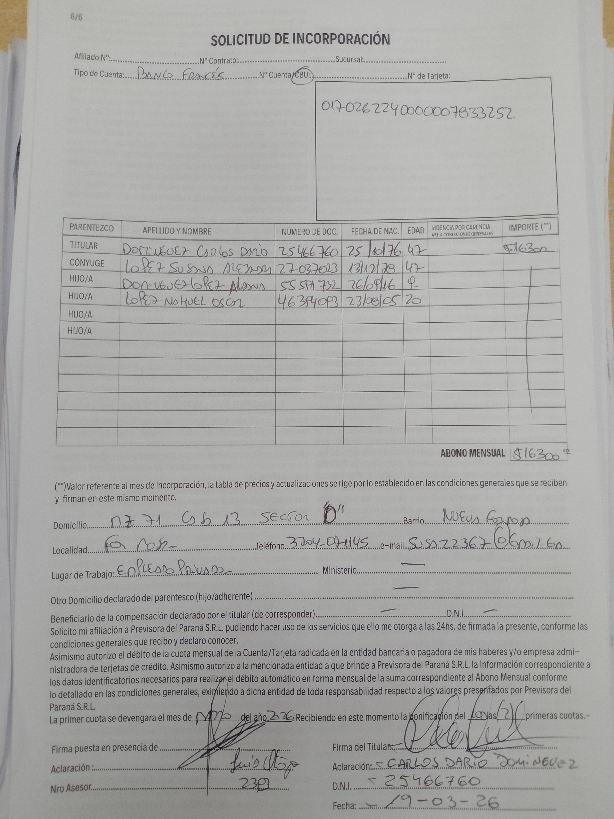 6/6
SOLICITUD DE INCORPORACIÓN
Afiliado Nº: Nº Contrato: Sucursal:
Tipo de Cuenta: BANCO FRANCÉS Nº Cuenta/CBU: Nº de Tarjeta:
0170262240000007833252
PARENTEZCO APELLIDO Y NOMBRE NÚMERO DE DOC. FECHA DE NAC. EDAD VIGENCIA POR CARENCIA IMPORTE (**)
TITULAR DOMINGUEZ CARLOS DARIO 25466760 25/10/76 47 $16300
CÓNYUGE LOPEZ SUSANA 27037023 13/12/78 47
HIJO/A DOMINGUEZ LOPEZ 26/09/16 9
HIJO/A LOPEZ NAHUEL OSCAR 46394093 23/08/05 20
HIJO/A
HIJO/A
ABONO MENSUAL $16300
(**)Valor referente al mes de incorporación, la tabla de precios y actualizaciones se rige por lo establecido en las condiciones generales que se reciben
y firman en este mismo momento.
Domicilio MZ 71 CASA 13 SECTOR "D" Barrio NUEVA
Localidad Teléfono 3704-071145 e-mail
Lugar de Trabajo: EMPLEADO PRIVADO Ministerio: —
Otro Domicilio declarado del parentesco (hijo/adherente) —
Beneficiario de la compensación declarado por el titular (de corresponder) — D.N.I. —
Solicito mi afiliación a Previsora del Paraná S.R.L. pudiendo hacer uso de los servicios que ello me otorga a las 24hs. de firmada la presente, conforme las
condiciones generales que recibo y declaro conocer.
Asimismo autorizo el débito de la cuota mensual de la Cuenta/Tarjeta radicada en la entidad bancaria o pagadora de mis haberes y/o empresa admi-
nistradora de tarjetas de crédito. Asimismo autorizo a la mencionada entidad a que brinde a Previsora del Paraná S.R.L. la Información correspondiente a
los datos identificatorios necesarios para realizar el débito automático en forma mensual de la suma correspondiente al Abono Mensual conforme
lo detallado en las condiciones generales, eximiendo a dicha entidad de toda responsabilidad respecto a los valores presentados por Previsora del
Paraná S.R.L.
La primer cuota se devengara el mes de del año 2026 Recibiendo en este momento la bonificación del (2) primeras cuotas.-
Firma puesta en presencia de Firma del Titular:
Aclaración: Luis Aclaración: CARLOS DARIO DOMINGUEZ
Nro Asesor D.N.I. 25466760
Fecha: 19-03-26